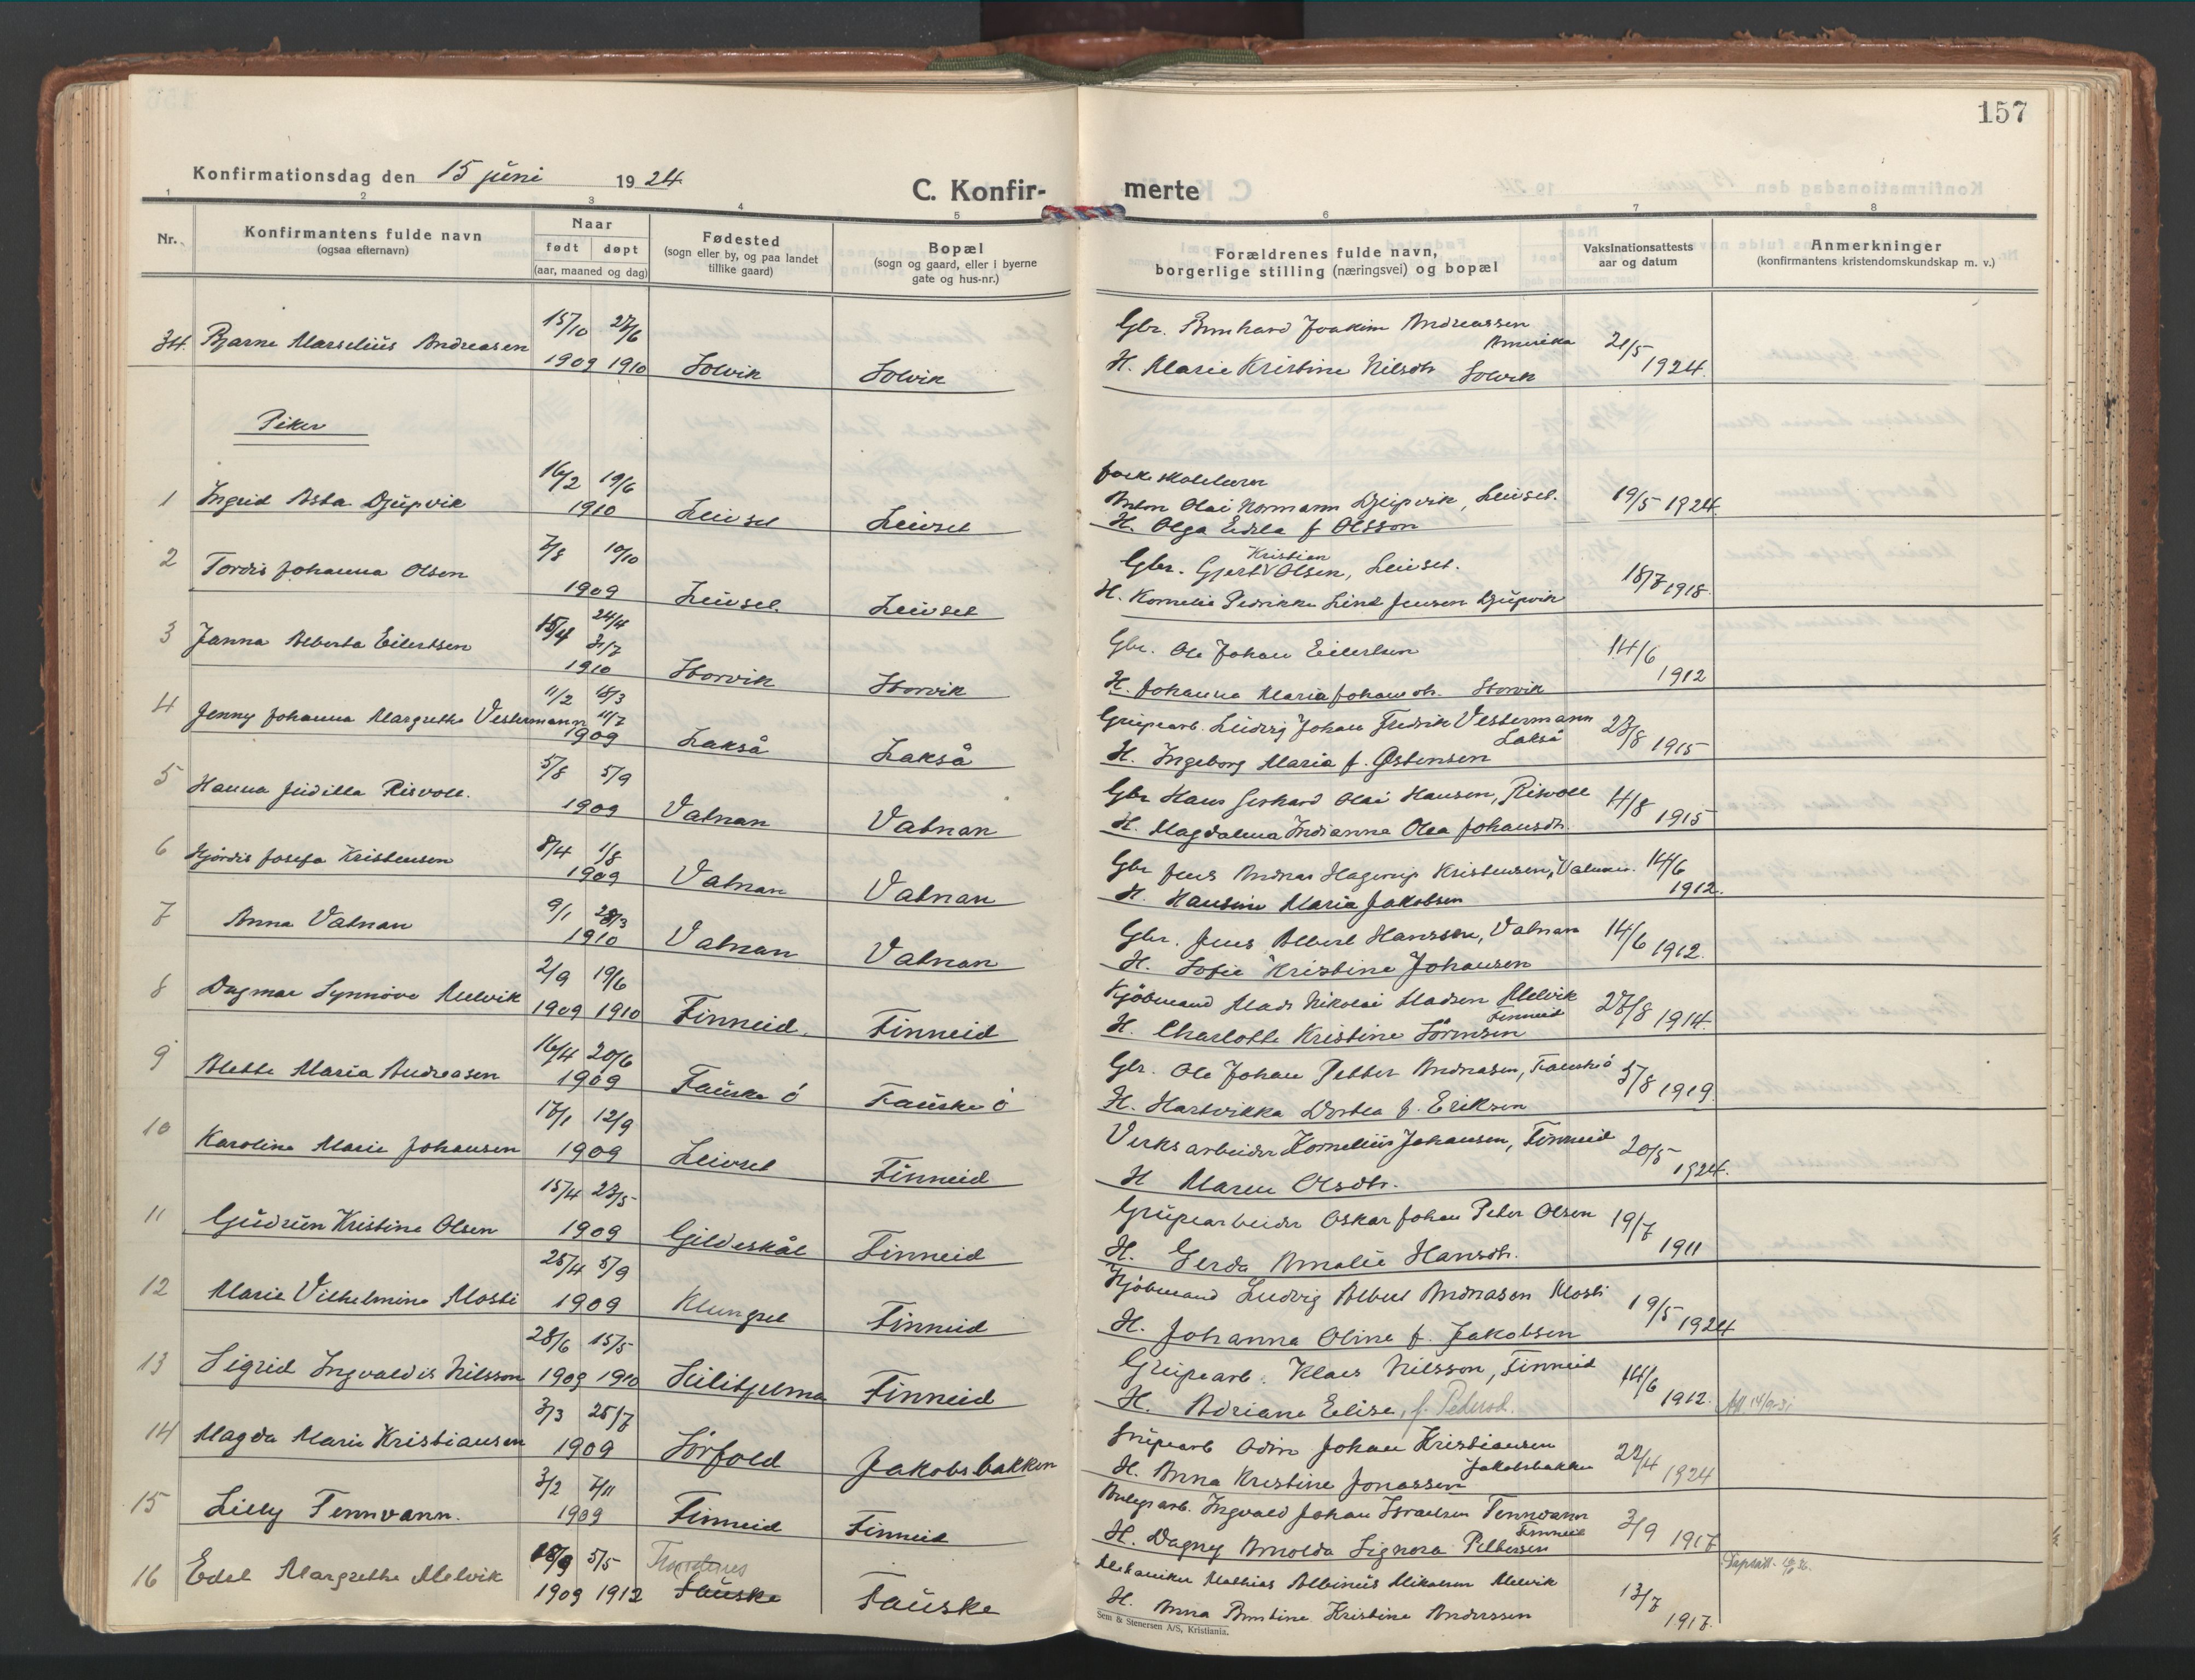 157
Konfirmationsdag den 15 juni 1924
C. Konfir- merte
1 2 3 4 5 6 7 8
Nr.
Konfirmantens fulde navn
(ogsaa efternavn)
Naar
født døpt
(aar, maaned og dag)
Fødested
(sogn eller by, og paa landet
tillike gaard)
Bopæl
(sogn og gaard, eller i byerne
gate og hus-nr.)
Forældrenes fulde navn,
borgerlige stilling (næringsvei) og bopæl
Vaksinationsattests
aar og datum
Anmerkninger
(konfirmantens kristendomskundskap m. v.)
15/10 27/6 Gbr. Bernhard Joakim Andreassen
Amerika
34. Bjarne Marselius Andreasen 1909 1910 Solvik Solvik H. Marie Kristine Nilsdtr Solvik 21/5 1924.
Piker
16/2 19/6 Folkeskolelærer
1 Ingrid Asta Djupvik 1910 Leivset Leivset Anton Olai Normann Djupvik, Leivset. 19/5 1924.
H. Olga Edela f Olsson
7/8 10/10 Kristian
2 Tordis Johanna Olsen 1909 Leivset. Leivset Gbr. Gjert Olsen, Leivset. 18/7 1918.
H. Kornelia Pedrikke Lind Jensen Djupvik
15/4 24/4
31/7
3 Janna Alberta Eilertsen 1910 Storvik Storvik Gbr. Ole Johan Eilertsen 14/6 1912
H. Johanna Maria Johansdtr. Storvik
11/2 18/3
11/7
4 Jenny Johanna Margrethe Vestermann 1909 Lakså Lakså Grupearb. Ludvig Johan Fredrik Vestermann 23/8 1915
Lakså
H. Ingeborg Maria f. Østensen
5/8 5/9
5 Hanna Juditta Risvoll. 1909 Vatnan Vatnan Gbr Hans Gerhard Olai Hansen, Risvoll 4/8 1915
H. Magdalena Indianna Olea Johansdtr.
8/4 1/8
6 Hjördis Josefa Kristensen 1909 Vatnan Vatnan Gbr Jens Andreas Hagerup Kristensen, Vatnan. 14/6 1912.
H. Hansine Maria Jakobsen
9/1 28/3
7 Anna Vatnan 1910 Vatnan Vatnan Gbr. Jens Albert Hanssen, Vatnan 14/6 1912.
H. Sofie Kristine Johansen
2/9 19/6
8 Dagmar Synnöve Melvik 1909 1910 Finneid. Finneid Kjöbmand Mads Nikolai Madsen Melvik 27/8 1914.
Finneid
H. Charlotte Kristine Sörensen
16/4 20/6
9 Alette Maria Andreasen 1909 Fauske ö Fauske ö Gbr. Ole Johan Petter Andreasen, Fauske ö 5/8 1919.
H. Hartvikka Dortea f. Eriksen
17/1 12/9
10 Karoline Marie Johansen 1909 Leivset Finneid Verksarbeider Kornelius Johansen, Finneid 20/5 1924.
H Maren Olsdtr.
15/4 23/5
11 Gudrun Kristine Olsen 1909 Gildeskål Finneid Grupearbeider Oskar Johan Peter Olsen 19/7 1911
H. Gerda Amalie Hansdtr.
25/4 5/9
12 Marie Vilhelmine Mosti 1909 Klungset Finneid Kjöbmand Ludvig Albert Andreasen Mosti 19/5 1924
H. Johanna Oline f. Jakobsen
28/6 15/5
13 Sigrid Ingvaldis Nilsson 1909 1910 Sulitjelma Finneid Grupearb. Klaes Nilsson, Finneid 14/6 1912.
H. Adriane Elise, f. Pedersd.
3/3 25/7
14 Magda Marie Kristiansen 1909 Sörfold Jakobsbakken Grupearb Odin Johan Kristiansen 22/4 1924
Jakobsbakken
H. Anna Kristine Jonassen
3/2 7/11
15 Lilly Tennvann. 1909 Finneid Finneid Anlegsarb. Ingvald Johan Israelsen Tennvann 3/9 1917
Finneid
H. Dagny Arnolda Signora Pettersen
18/9 5/5
16 Edel Margrethe Melvik 1909 1912 Fauske Fauske Mekaniker Mathias Albinius Mikalsen Melvik 13/7 1917.
H. Anna Kristine Anderssen
Sem & Stenersen A/S, Kristiania.